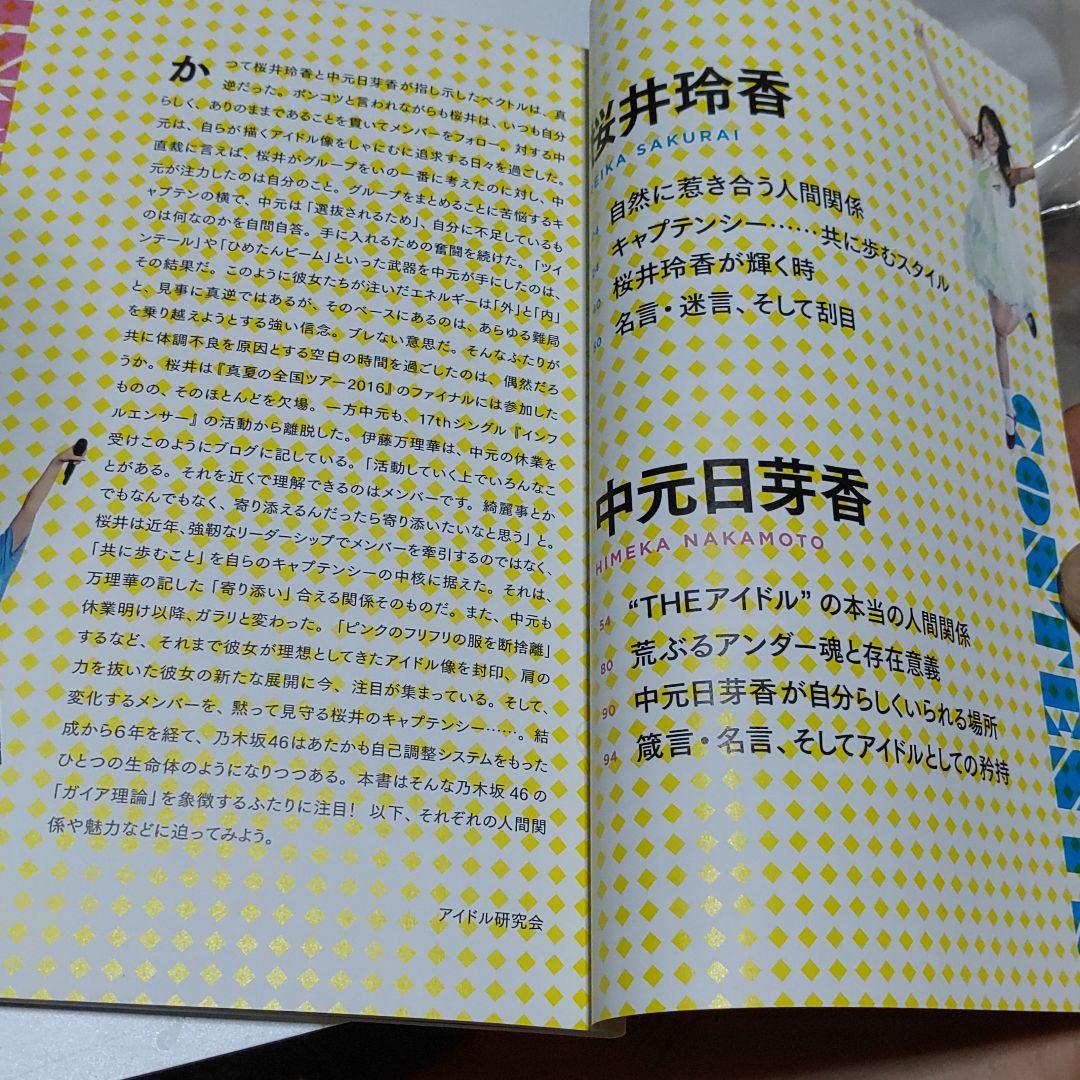 かつて桜井玲香と中元日芽香が指し示したベクトルは、真
逆だった。ポンコツと言われながらも桜井は、いつも自分
らしく、ありのままであることを貫いてメンバーをフォロー。対する中
元は、自らが描くアイドル像をしゃにむに追求する日々を過ごした。
直裁に言えば、桜井がグループをいの一番に考えたのに対し、中
元が注力したのは自分のこと。グループをまとめることに苦悩するキ
ャプテンの横で、中元は「選抜されるため」、自分に不足しているも
のは何なのかを自問自答。手に入れるための奮闘を続けた。「ツイ
ンテール」や「ひめたんビーム」といった武器を中元が手にしたのは、
その結果だ。このように彼女たちが注いだエネルギーは「外」と「内」
と、見事に真逆ではあるが、そのベースにあるのは、あらゆる難局
を乗り越えようとする強い信念。ブレない意思だ。そんなふたりが
共に体調不良を原因とする空白の時間を過ごしたのは、偶然だろ
うか。桜井は『真夏の全国ツアー2016』のファイナルには参加した
ものの、そのほとんどを欠場。一方中元も、17thシングル『インフ
ルエンサー』の活動から離脱した。伊藤万理華は、中元の休業を
受けこのようにブログに記している。「活動していく上でいろんなこ
とがある。それを近くで理解できるのはメンバーです。綺麗事とか
でもなんでもなく、寄り添えるんだったら寄り添いたいなと思う」と。
桜井は近年、強靭なリーダーシップでメンバーを牽引するのではなく、
「共に歩むこと」を自らのキャプテンシーの中核に据えた。それは、
万理華の記した「寄り添い」合える関係そのものだ。また、中元も
休業明け以降、ガラリと変わった。「ピンクのフリフリの服を断捨離」
するなど、それまで彼女が理想としてきたアイドル像を封印、肩の
力を抜いた彼女の新たな展開に今、注目が集まっている。そして、
変化するメンバーを、黙って見守る桜井のキャプテンシー……。結
成から6年を経て、乃木坂46はあたかも自己調整システムをもった
ひとつの生命体のようになりつつある。本書はそんな乃木坂46の
「ガイア理論」を象徴するふたりに注目！ 以下、それぞれの人間関
係や魅力などに迫ってみよう。
アイドル研究会
桜井玲香
REIKA SAKURAI
自然に惹き合う人間関係
キャプテンシー……共に歩むスタイル
桜井玲香が輝く時
名言・迷言、そして刮目
中元日芽香
HIMEKA NAKAMOTO
54 “THEアイドル”の本当の人間関係
80 荒ぶるアンダー魂と存在意義
90 中元日芽香が自分らしくいられる場所
94 箴言・名言、そしてアイドルとしての矜持